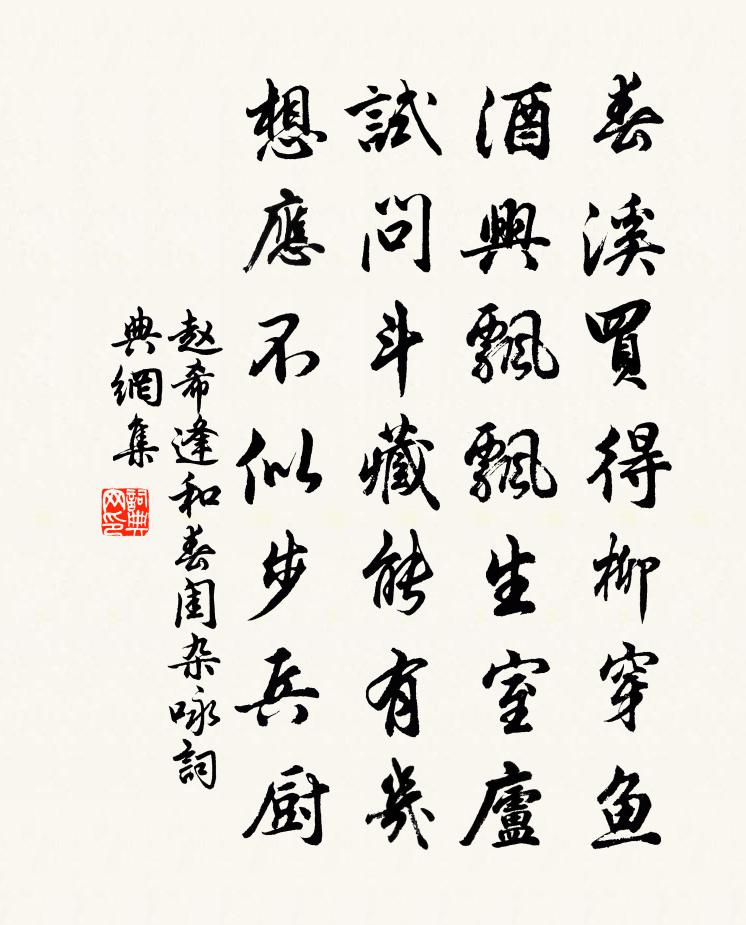 春溪買得柳穿鱼
酒興飄飄生室廬
試問斗藏能有幾
想應不似步兵厨
赵希逢和春闺杂咏詞
典網集
詞典
网印